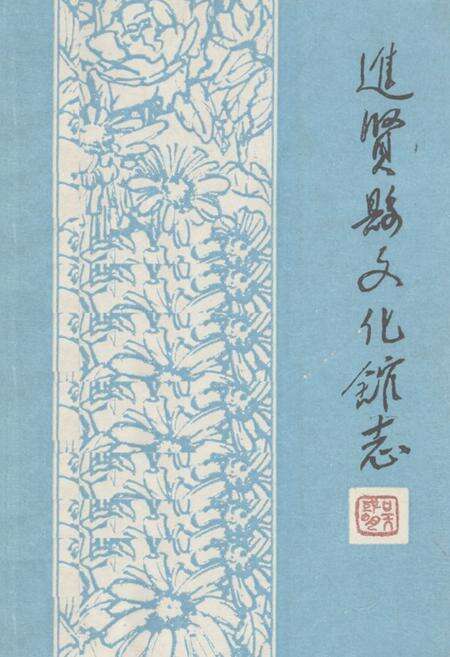 進賢縣文化館志